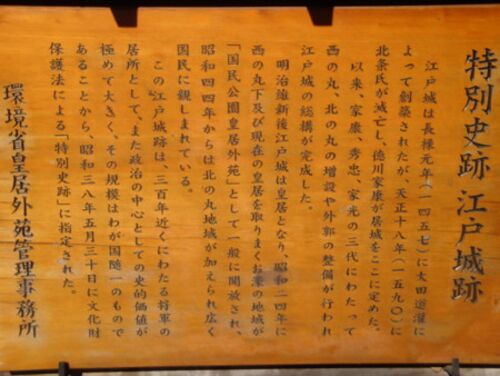 特別史跡 江戸城跡
江戸城は長禄元年(一四五七)に太田道灌に
よって創築されたが、天正十八年(一五九〇)に
北条氏が滅亡し、徳川家康が居城をここに定めた。
以来、家康 秀忠 家光の三代にわたって
西の丸、北の丸の増設や外郭の整備が行われ
江戸城の総構が完成した。
明治維新後江戸城は皇居となり、昭和二四年に
西の丸下及び現在の皇居を取りまくお濠の地域が
「国民公園皇居外苑」として一般に開放され、
昭和四四年からは北の丸地域が加えられ広く
国民に親しまれている。
この江戸城跡は、三百年近くにわたる将軍の
居所として、また政治の中心としての史的価値が
極めて大きく、その規模はわが国随一のもので
あることから、昭和三八年五月三十日に文化財
保護法による「特別史跡」に指定された。
環境省皇居外苑管理事務所